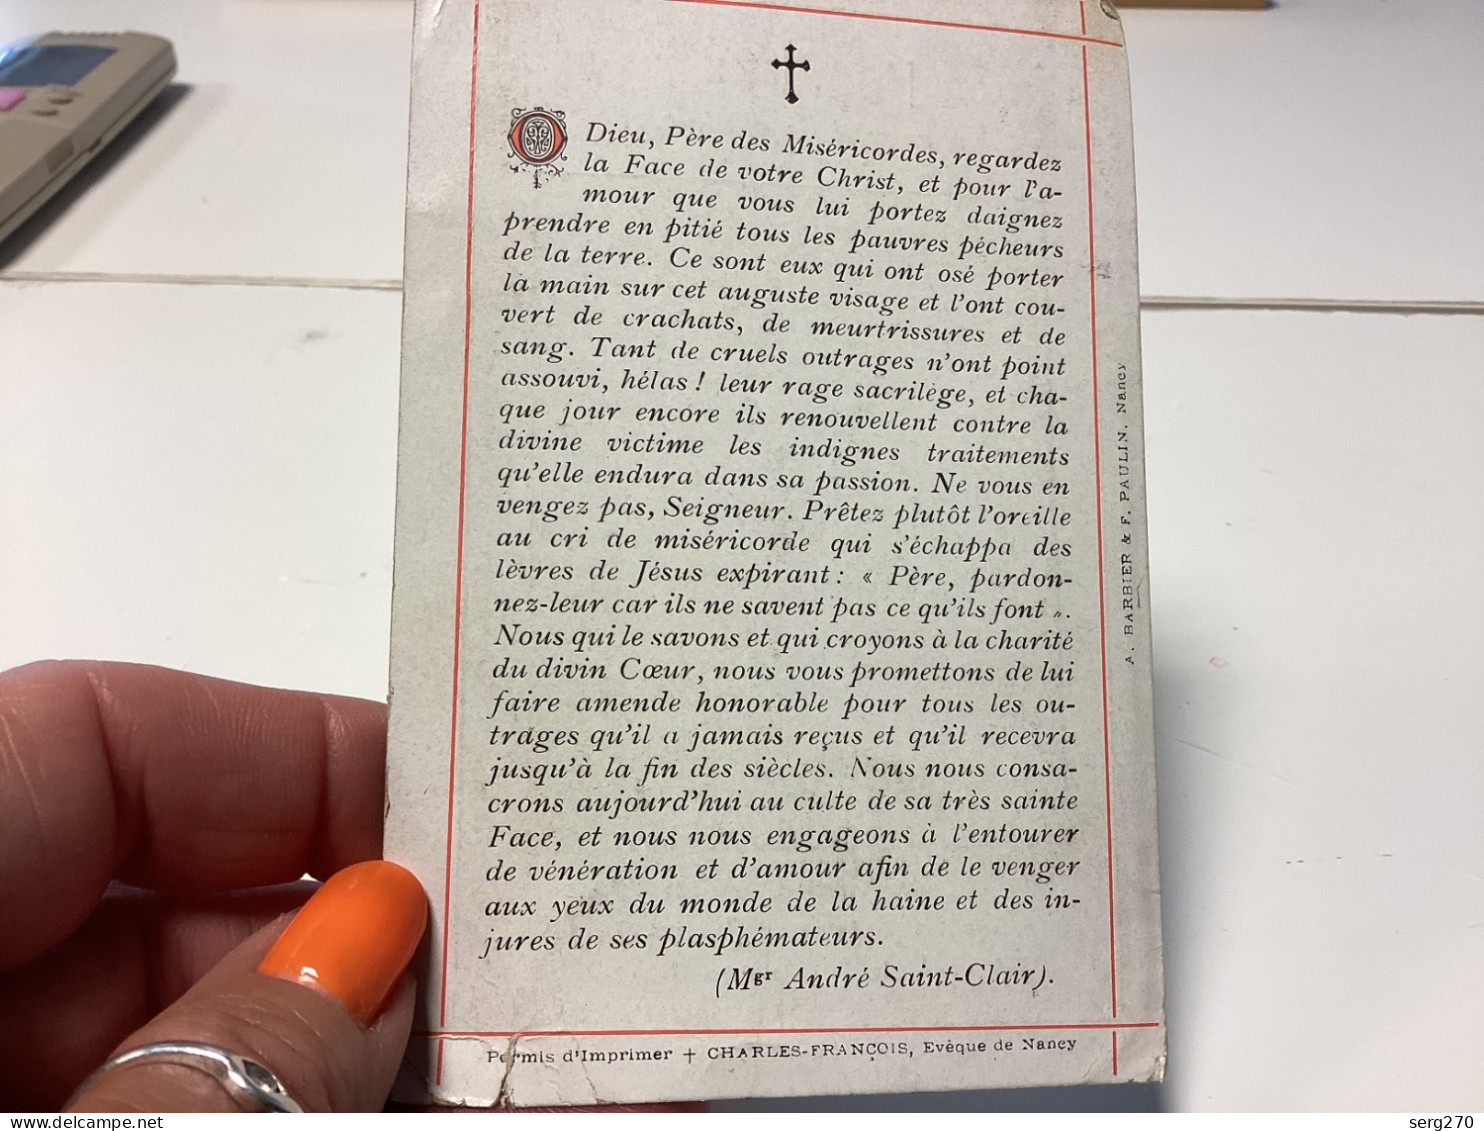 O Dieu, Père des Miséricordes, regardez
la Face de votre Christ, et pour l'a-
mour que vous lui portez daignez
prendre en pitié tous les pauvres pécheurs
de la terre. Ce sont eux qui ont osé porter
la main sur cet auguste visage et l'ont cou-
vert de crachats, de meurtrissures et de
sang. Tant de cruels outrages n'ont point
assouvi, hélas ! leur rage sacrilège, et cha-
que jour encore ils renouvellent contre la
divine victime les indignes traitements
qu'elle endura dans sa passion. Ne vous en
vengez pas, Seigneur. Prêtez plutôt l'oreille
au cri de miséricorde qui s'échappa des
lèvres de Jésus expirant : « Père, pardon-
nez-leur car ils ne savent pas ce qu'ils font ».
Nous qui le savons et qui croyons à la charité
du divin Cœur, nous vous promettons de lui
faire amende honorable pour tous les ou-
trages qu'il a jamais reçus et qu'il recevra
jusqu'à la fin des siècles. Nous nous consa-
crons aujourd'hui au culte de sa très sainte
Face, et nous nous engageons à l'entourer
de vénération et d'amour afin de le venger
aux yeux du monde de la haine et des in-
jures de ses plasphémateurs.
(Mgr André Saint-Clair).
Permis d'Imprimer + CHARLES-FRANÇOIS, Evêque de Nancy
A. BARBIER & F. PAULIN. Nancy
www.delcampe.net
serg270